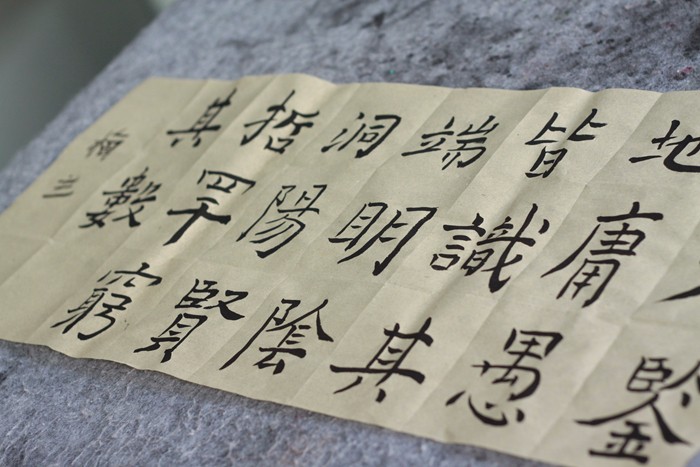 鑒
地庸愚
皆識其
端明陰
洞陽賢
哲罕窮
其數